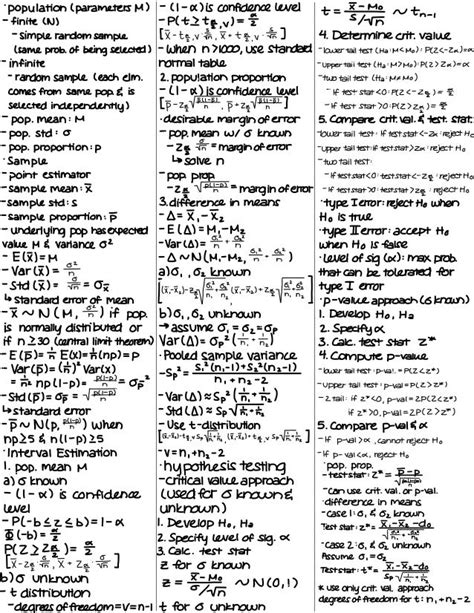 ·population (parameters M)
-finite (N)
-simple random sample
(same prob. of being selected)
-infinite
-random sample (each elm.
comes from same pop. & is
selected independently)
-pop. mean: M
-pop. std: σ
-pop. proportion: p
·Sample
-point estimator
-sample mean: x̄
-sample std: s
-sample proportion: p̄
-underlying pop has expected
value M & variance σ²
-E(x̄) = M
-Var(x̄) = σ²/n
-Std(x̄) = σ/√n = σx̄
↳standard error of mean
-x̄ ~ N(M, σ²/n) if pop.
is normally distributed or
if n ≥ 30 (central limit theorem)
-E(p̄) = 1/n E(x) = 1/n(np) = p
-Var(p̄) = (1/n)² Var(x)
= 1/n² np(1-p) = p(1-p)/n = σp̄²
-Std(p̄) = σp̄ = √p(1-p)/n
↳standard error
-p̄ ~ N(p, p(1-p)/n) when
np ≥ 5 & n(1-p) ≥ 5
·Interval Estimation
1. pop. mean M
a) σ known
-(1-α) is confidence
level
-P(-b ≤ z ≤ b) = 1-α
Φ(-b) = α/2
P(Z ≥ Zα/2) = α/2
[x̄ - zα/2 σ/√n, x̄ + zα/2 σ/√n]
b) σ unknown
-t distribution
-degrees of freedom = V = n-1
-(1-α) is confidence level
-P(t ≥ tα/2,v) = α/2
-When n > 1000, use standard
normal table
2. population proportion
-(1-α) is confidence level
·desirable margin of error
-pop. mean w/ σ known
-zα/2 σ/√n = margin of error
↳solve n
-pop prop.
-zα/2 √p(1-p)/n = margin of error
3. difference in means
-Δ = x̄₁ - x̄₂
-E(Δ) = M₁ - M₂
-Var(Δ) = σ₁²/n₁ + σ₂²/n₂
-Δ ~ N(M₁-M₂, σ₁²/n₁ + σ₂²/n₂)
a) σ₁, σ₂ known
b) σ₁, σ₂ unknown
→assume σ₁ = σ₂ = σp
Var(Δ) = σp²(1/n₁ + 1/n₂)
·Pooled sample variance
-Sp² = s₁²(n₁-1)+s₂²(n₂-1) / n₁+n₂-2
-Var(Δ) ≈ Sp²(1/n₁ + 1/n₂)
-Std(Δ) ≈ Sp√1/n₁ + 1/n₂
-Use t-distribution
-V = n₁+n₂-2
·hypothesis testing
-critical value approach
(used for σ known &
unknown)
1. Develop H₀, Hₐ
2. Specify level of sig. α
3. Calc. test stat
z for σ known
z = x̄-M₀ / σ/√n ~ N(0,1)
t for σ unknown
t = x̄-M₀ / s/√n ~ tn-1
4. Determine crit. value
-lower tail test (Hₐ: M<M₀): P(Z<-Zα)=α
-upper tail test (Hₐ: M>M₀): P(Z>Zα)=α
-two tail test (Hₐ: M≠M₀)
-if test stat <0: P(Z<-Zα/2) = α/2
-if test stat >0: P(Z>Zα/2) = α/2
5. Compare crit. val. & test. stat.
-lower tail test: if test stat <-Zα: reject H₀
-upper tail: if test stat >Zα: reject H₀
-two tail test:
-if test stat <0: test stat <-Zα/2: reject H₀
-if test stat >0: test stat >Zα/2: reject H₀
·type I error: reject H₀ when
H₀ is true
·type II error: accept H₀
when H₀ is false
·level of sig (α): max prob.
that can be tolerated for
type I error
·p-value approach (σ known)
1. Develop H₀, Hₐ
2. Specify α
3. Calc. test stat z*
4. Compute p-value
-lower tail test: p-val. = P(Z<z*)
-upper tail test: p-val = P(Z>z*)
-2 tail: if z*<0, p-val = 2P(Z<z*)
if z*>0, p-val = 2P(Z>z*)
5. Compare p-val & α
-if p-val >α, cannot reject H₀
-if p-val <α, reject H₀
·pop. prop.
-can use crit. val. or p-val.
·difference in means
-case 1: σ₁ & σ₂ known
Test stat: z* = x̄₁-x̄₂-d₀ / √σ₁²/n₁ + σ₂²/n₂
-Case 2: σ₁ & σ₂ unknown
Assume σ₁ = σ₂
* use only crit. val. approach
degrees of freedom for t: n₁+n₂-2